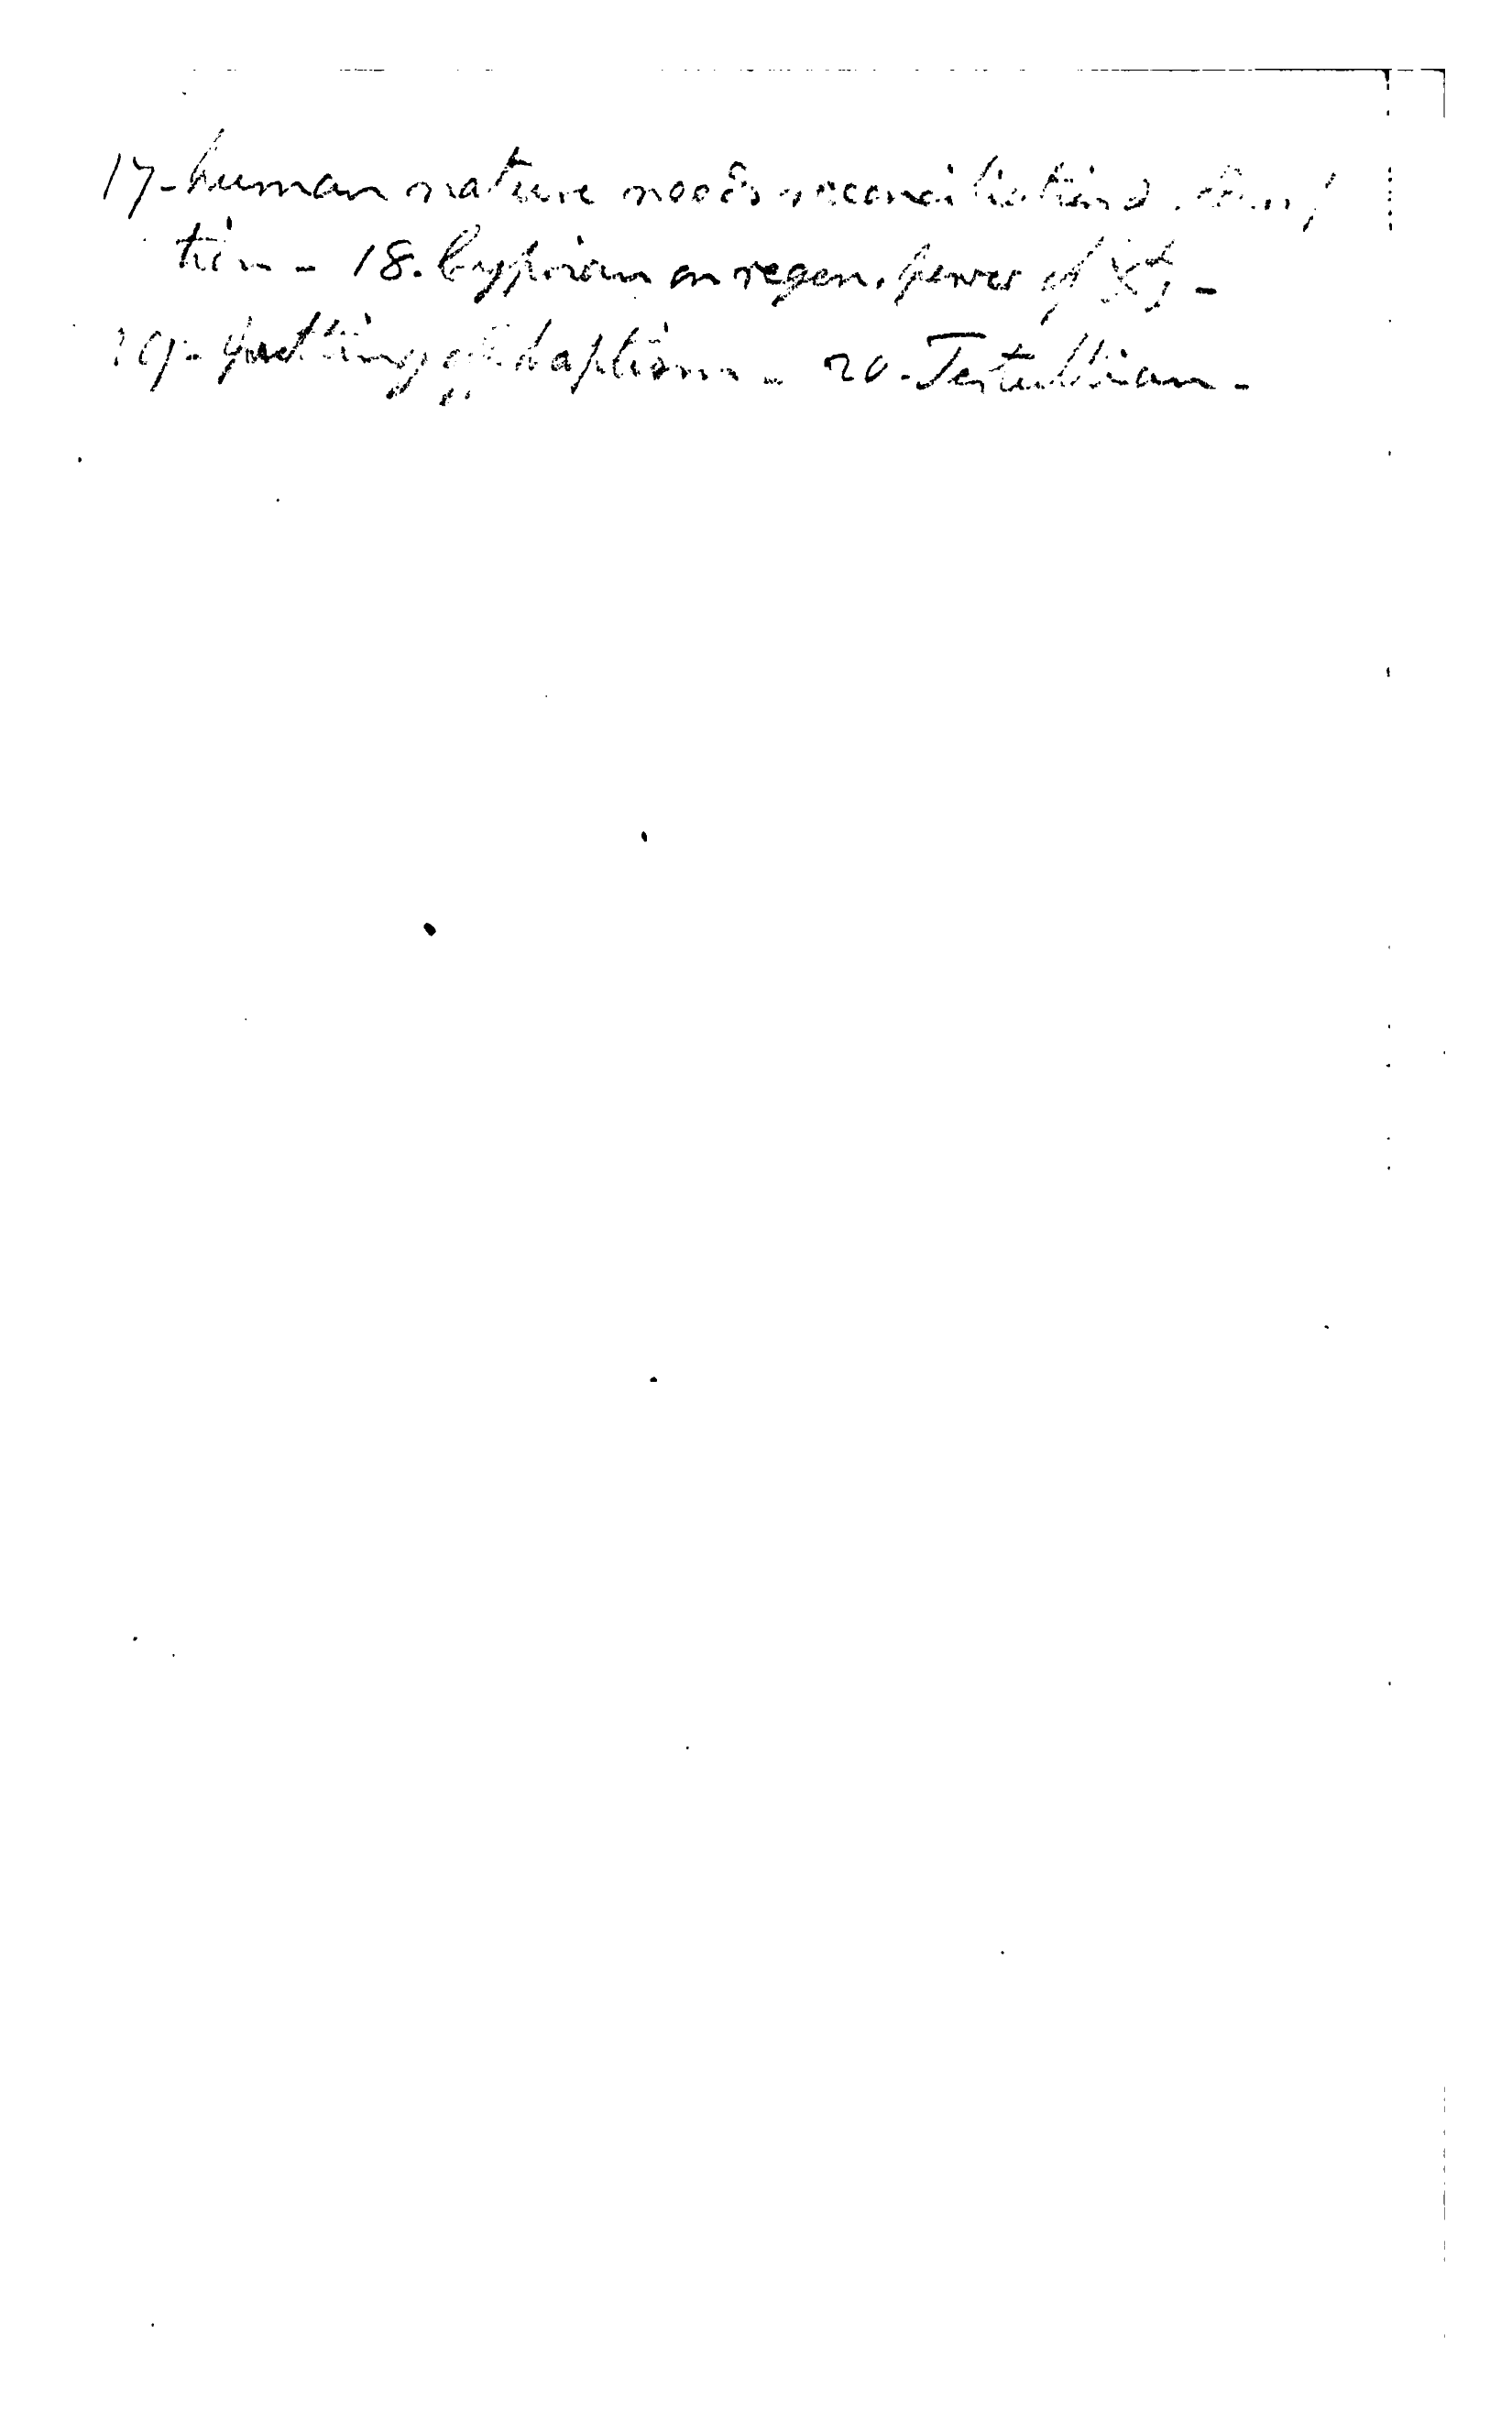 17-human nature needs reconciliation &
tion - 18. Cyprian on regen. power of Xty -
19- putting off baptism - 20. Tertullian -